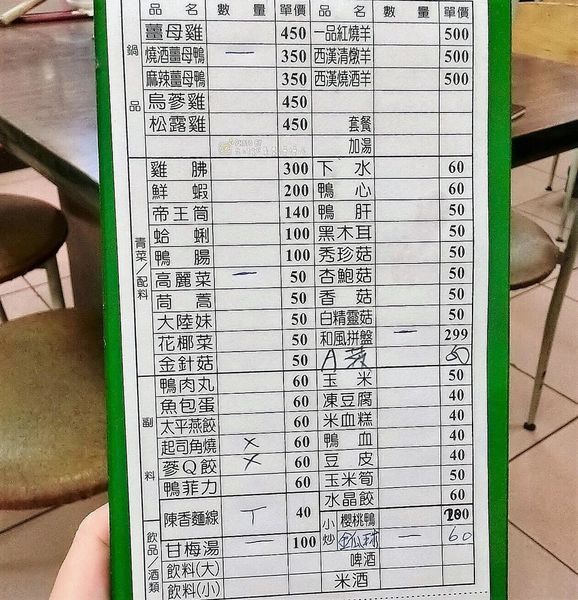 品名 數量 單價 品名 數量 單價
鍋品
薑母雞 450 一品紅燒羊 500
燒酒薑母鴨 一 350 西漢清燉羊 500
麻辣薑母鴨 350 西漢燒酒羊 500
烏蔘雞 450
松露雞 450 套餐
加湯
青菜/配料
雞胇 300 下水 60
鮮蝦 200 鴨心 60
帝王筒 140 鴨肝 50
蛤蜊 100 黑木耳 50
鴨腸 100 秀珍菇 50
高麗菜 一 50 杏鮑菇 50
茼蒿 50 香菇 50
大陸妹 50 白精靈菇 50
花椰菜 50 和風拼盤 一 299
金針菇 50 A菜 50
副料
鴨肉丸 60 玉米 50
魚包蛋 60 凍豆腐 40
太平燕餃 60 米血糕 40
起司角燒 × 60 鴨血 40
蔘Q餃 × 60 豆皮 40
鴨菲力 60 玉米筍 50
水晶餃 60
陳香麵線 丅 40 小炒 櫻桃鴨
飲品/酒類
甘梅湯 一 100 一 60
飲料(大) 啤酒
飲料(小) 米酒